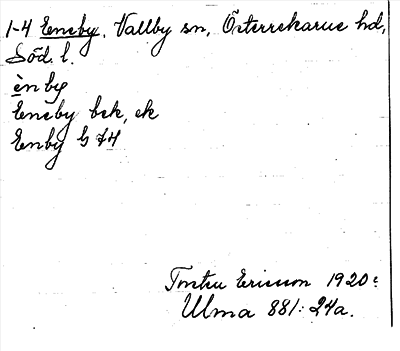 1-4 Eneby. Vallby sn, Österrekarne hd,
Söd. l.
ènby
Eneby bek, ek
Enby G 74
Torsten Ericsson 1920:
Ulma 881: 24a.